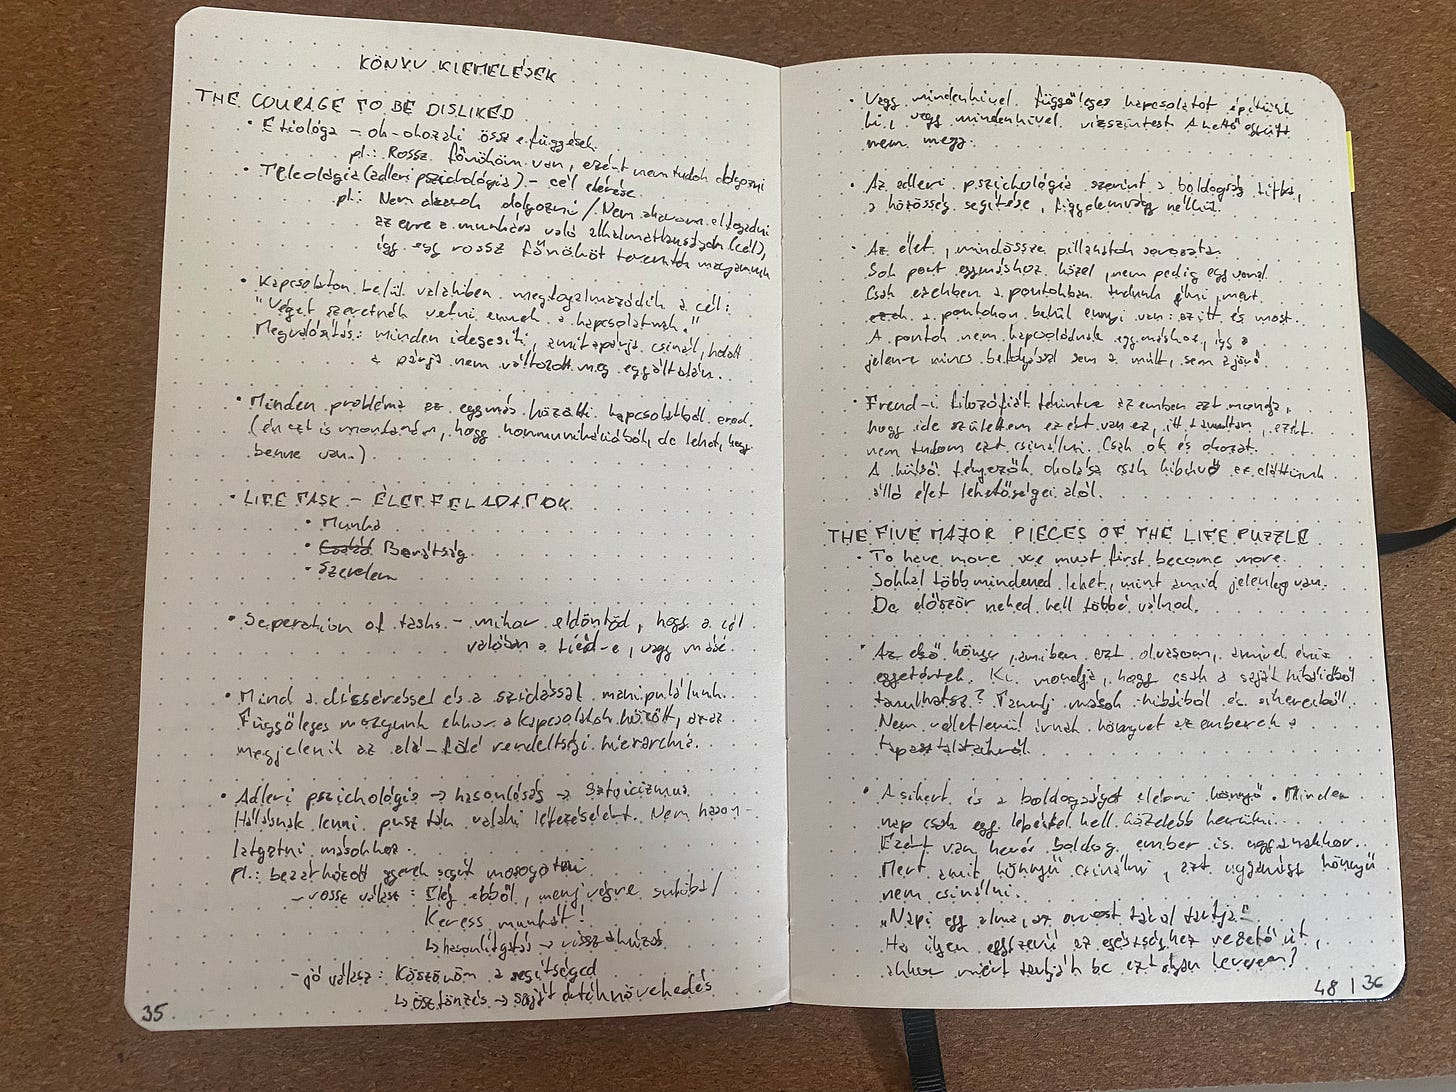 KÖNYV KIEMELÉSEK
THE COURAGE TO BE DISLIKED
• Etiológa – ok-okozati összefüggések.
pl.: Rossz főnököm van, ezért nem tudok dolgozni
• Teleológia (adleri pszichológia) – cél elérése.
pl.: Nem akarok dolgozni / Nem akarom elfogadni
az erre a munkára való alkalmatlanságom (cél),
így egy rossz főnököt teremtek magamnak
• Kapcsolaton belül valakiben megfogalmazódik a cél:
"Véget szeretnék vetni ennek a kapcsolatnak."
Megvalósítás: minden idegesíti, amit a párja csinál, holott
a párja nem változott meg egyáltalán.
• Minden probléma az egymás közötti kapcsolatból ered.
(én ezt is mondanám, hogy kommunikációból, de lehet, hogy
benne van.)
• LIFE TASK – ÉLETFELADATOK
• Munka
• Barátság
• Szerelem
• Seperation of tasks – mikor eldöntöd, hogy a cél
valóban a tiéd-e, vagy másé.
• Mind a dícséréssel és a szidással manipulálunk.
Függőleges mozgunk ekkor a kapcsolatok között, azaz
megjelenik az alá-fölé rendeltségi hierarchia.
• Adleri pszichológia → hasonlóság → Sztoicizmus
Hálásnak lenni pusztán valaki létezéséért. Nem hason-
lítgatni másokhoz.
pl.: bezárkózott gyerek segít mosogatni
– rossz válasz: Elég ebből, menj végre suliba /
Keress munkát!
↳ hasonlítgatás → visszahúzás
– jó válasz: Köszönöm a segítséged
↳ ösztönzés → saját értéknövekedés
35
• Vagy mindenkivel függőleges kapcsolatot építünk
ki, vagy mindenkivel vízszintest. A kettő együtt
nem megy.
• Az adleri pszichológia szerint a boldogság titka,
a közösség segítése, figyelemvágy nélkül.
• Az élet, mindössze pillanatok sorozata.
Sok pont egymáshoz közel, nem pedig egy vonal.
Csak ezekben a pontokban tudunk élni, mert
ezek a pontokon belül ennyi van: az itt és most.
A pontok nem kapcsolódnak egymáshoz, így a
jelenre nincs befolyással sem a múlt, sem a jövő.
• Freud-i filozófiát tekintve az ember azt mondja,
hogy ide születtem ezért van ez, itt tanultam, ezért
nem tudom ezt csinálni. Csak ok és okozat.
A külső tényezők okolása csak kibúvó az előttünk
álló élet lehetőségei alól.
THE FIVE MAJOR PIECES OF THE LIFE PUZZLE
• To have more we must first become more.
Sokkal több mindened lehet, mint amid jelenleg van.
De először neked kell többé válnod.
• Az első könyv, amiben ezt olvasom, amivel én is
egyetértek. Ki mondja, hogy csak a saját hibáidból
tanulhatsz? Tanulj mások hibáiból és sikereiből.
Nem véletlenül írnak könyvet az emberek a
tapasztalataikról.
• A sikert és a boldogságot elérni könnyű. Minden
nap csak egy lépéssel kell közelebb kerülni.
Ezért van kevés boldog ember is ugyanakkor.
Mert amit könnyű csinálni, azt ugyanúgy könnyű
nem csinálni.
„Napi egy alma, az orvost távol tartja."
Ha ilyen egyszerű az egészséghez vezető út,
akkor miért tartják be ezt olyan kevesen?
48 | 36